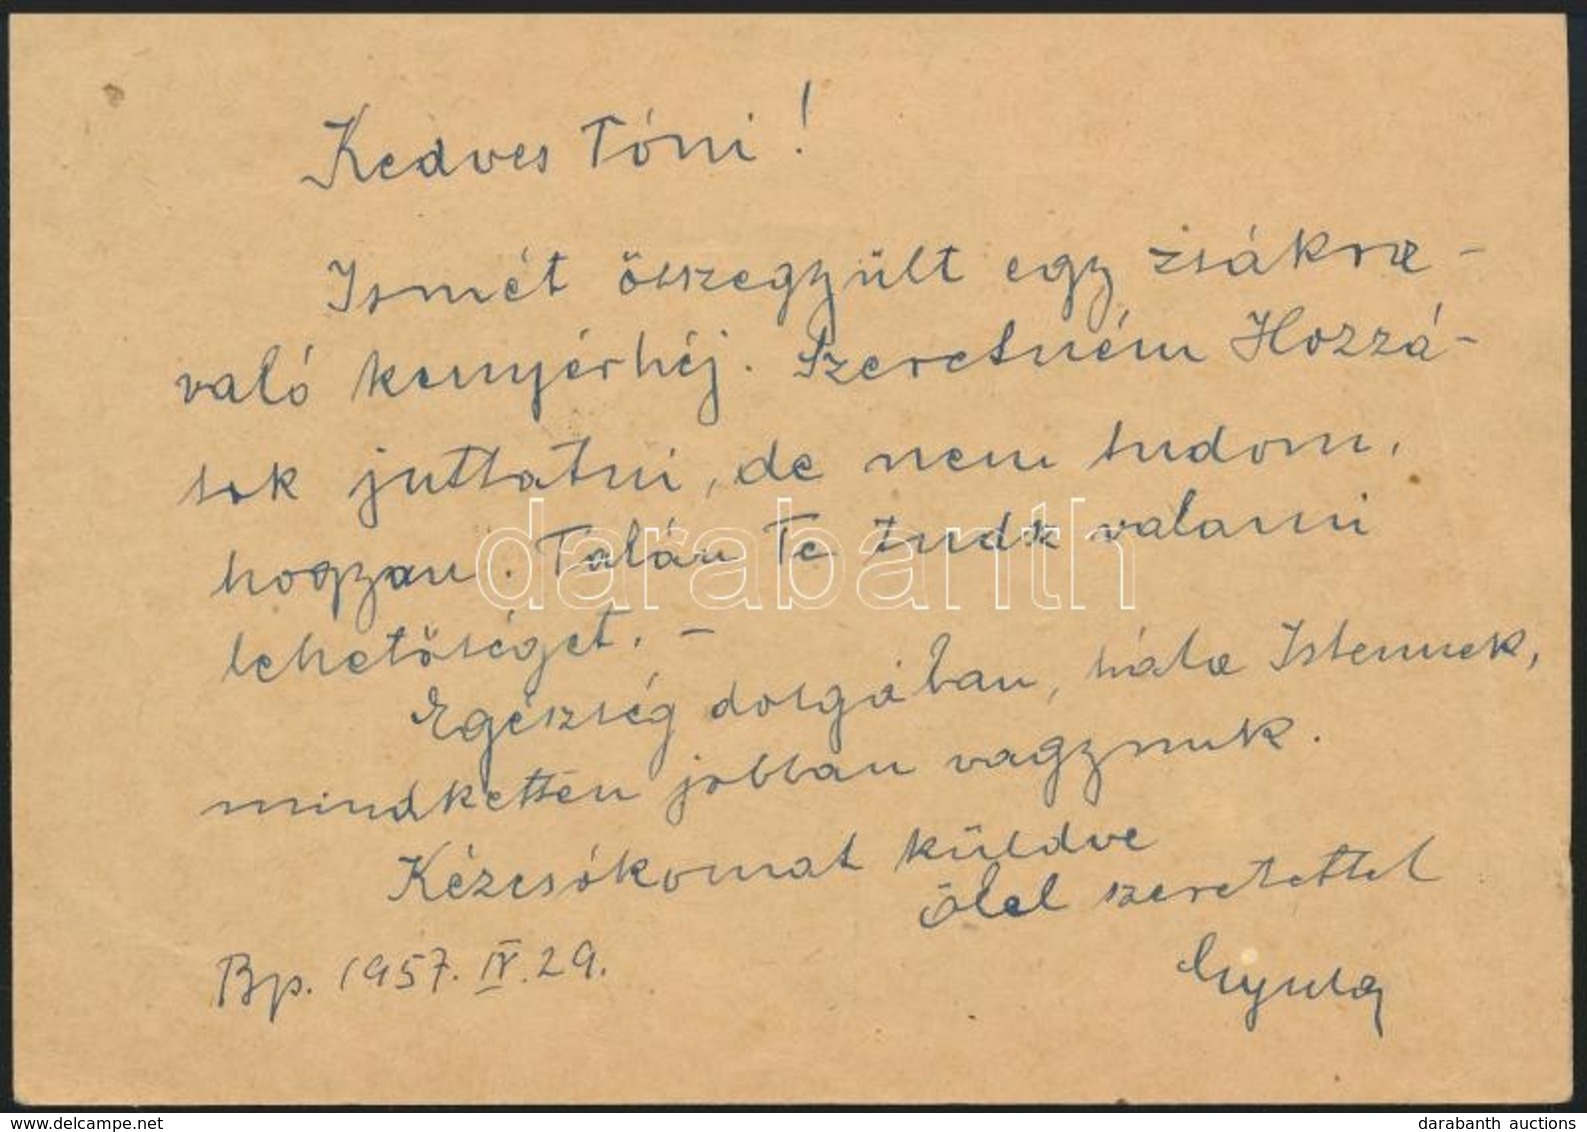 Kedves Tóni!
Ismét összegyült egy zsákra-
való kenyérhéj. Szeretném Hozzá-
tok juttatni, de nem tudom,
hogyan. Talán Te tudsz valami
lehetőséget. -
Egészség dolgában, hála Istennek,
mindketten jobban vagyunk.
Kézcsókomat küldve
ölel szeretettel
Gyula
Bp. 1957. IV. 29.
darabanth
www.delcampe.net
darabanth auctions